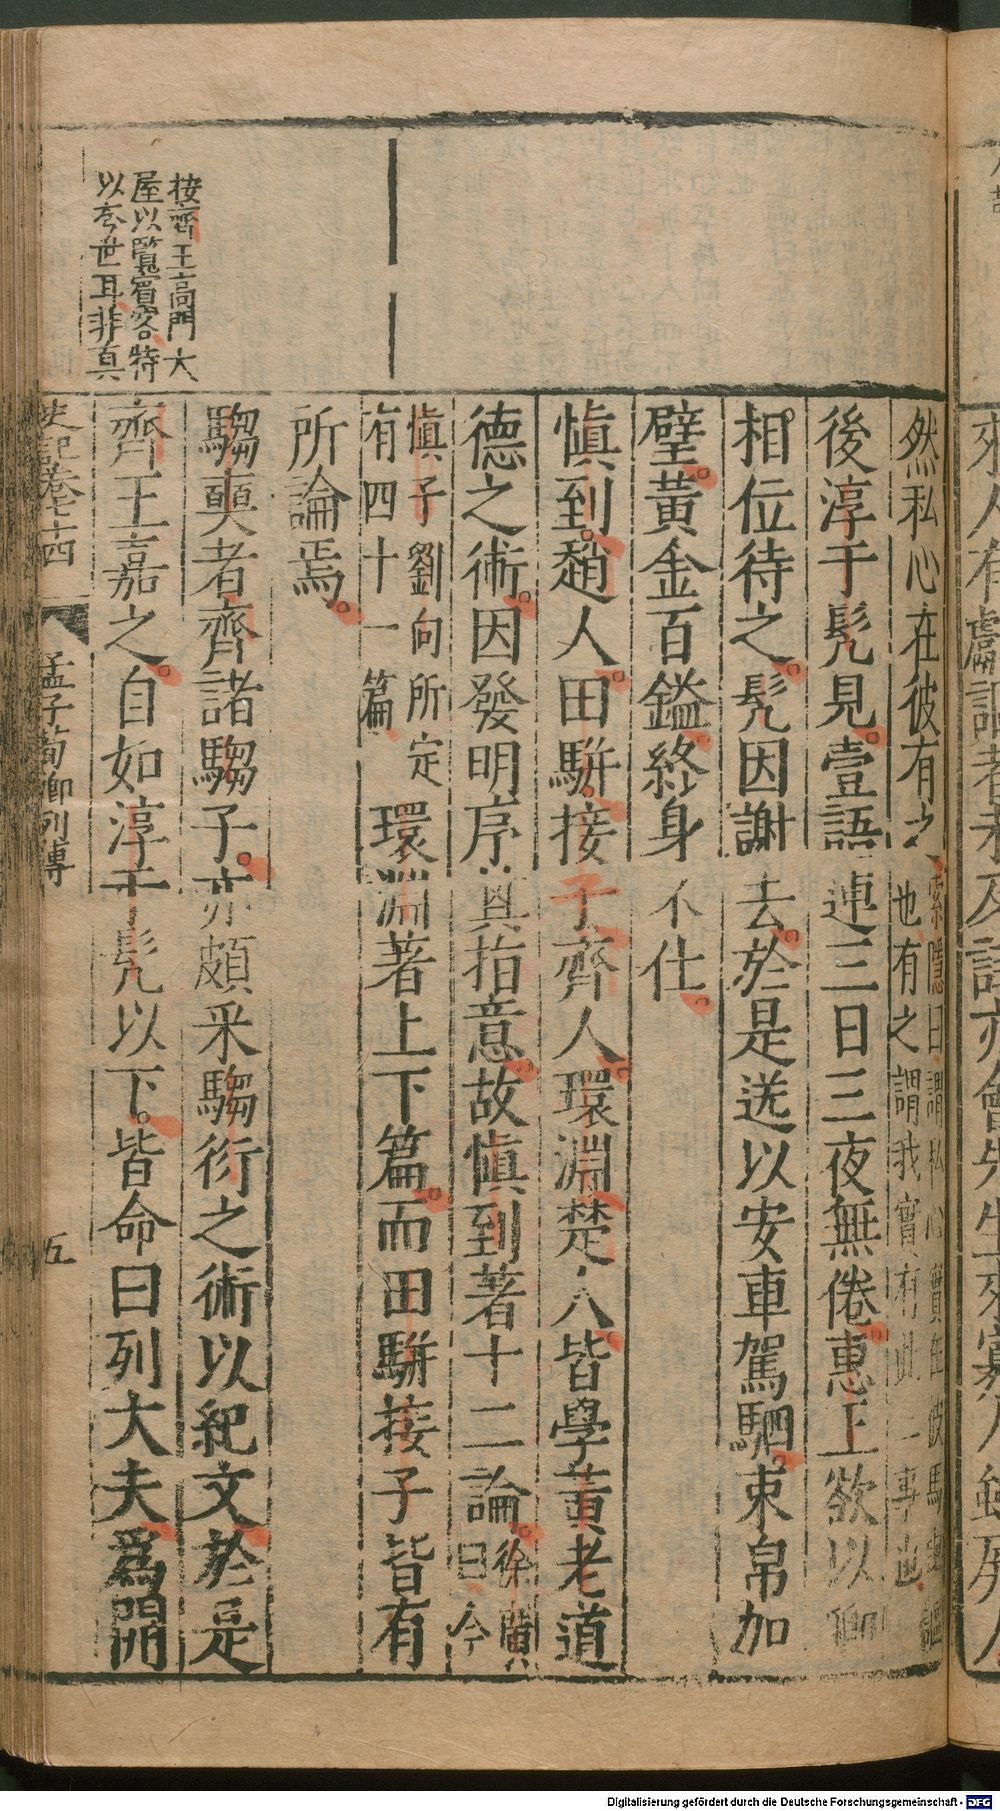 然私心在彼有之索隱曰謂私心實在彼馬與謳也有之謂我實有此二事也
後淳于髡見壹語連三日三夜無倦惠王欲以卿
相位待之髡因謝去於是送以安車駕駟束帛加
璧黃金百鎰終身不仕
慎到趙人田駢接子齊人環淵楚人皆學黃老道
德之術因發明序其指意故慎到著十二論徐廣曰今
慎子劉向所定有四十一篇環淵著上下篇而田駢接子皆有
所論焉
騶奭者齊諸騶子亦頗采騶衍之術以紀文於是
齊王嘉之自如淳于髡以下皆命曰列大夫為開
史記卷七十四 孟子荀卿列傳 五
按齊王高門大
屋以覽賓客特
以夸世耳非真
Digitalisierung gefördert durch die Deutsche Forschungsgemeinschaft - DFG